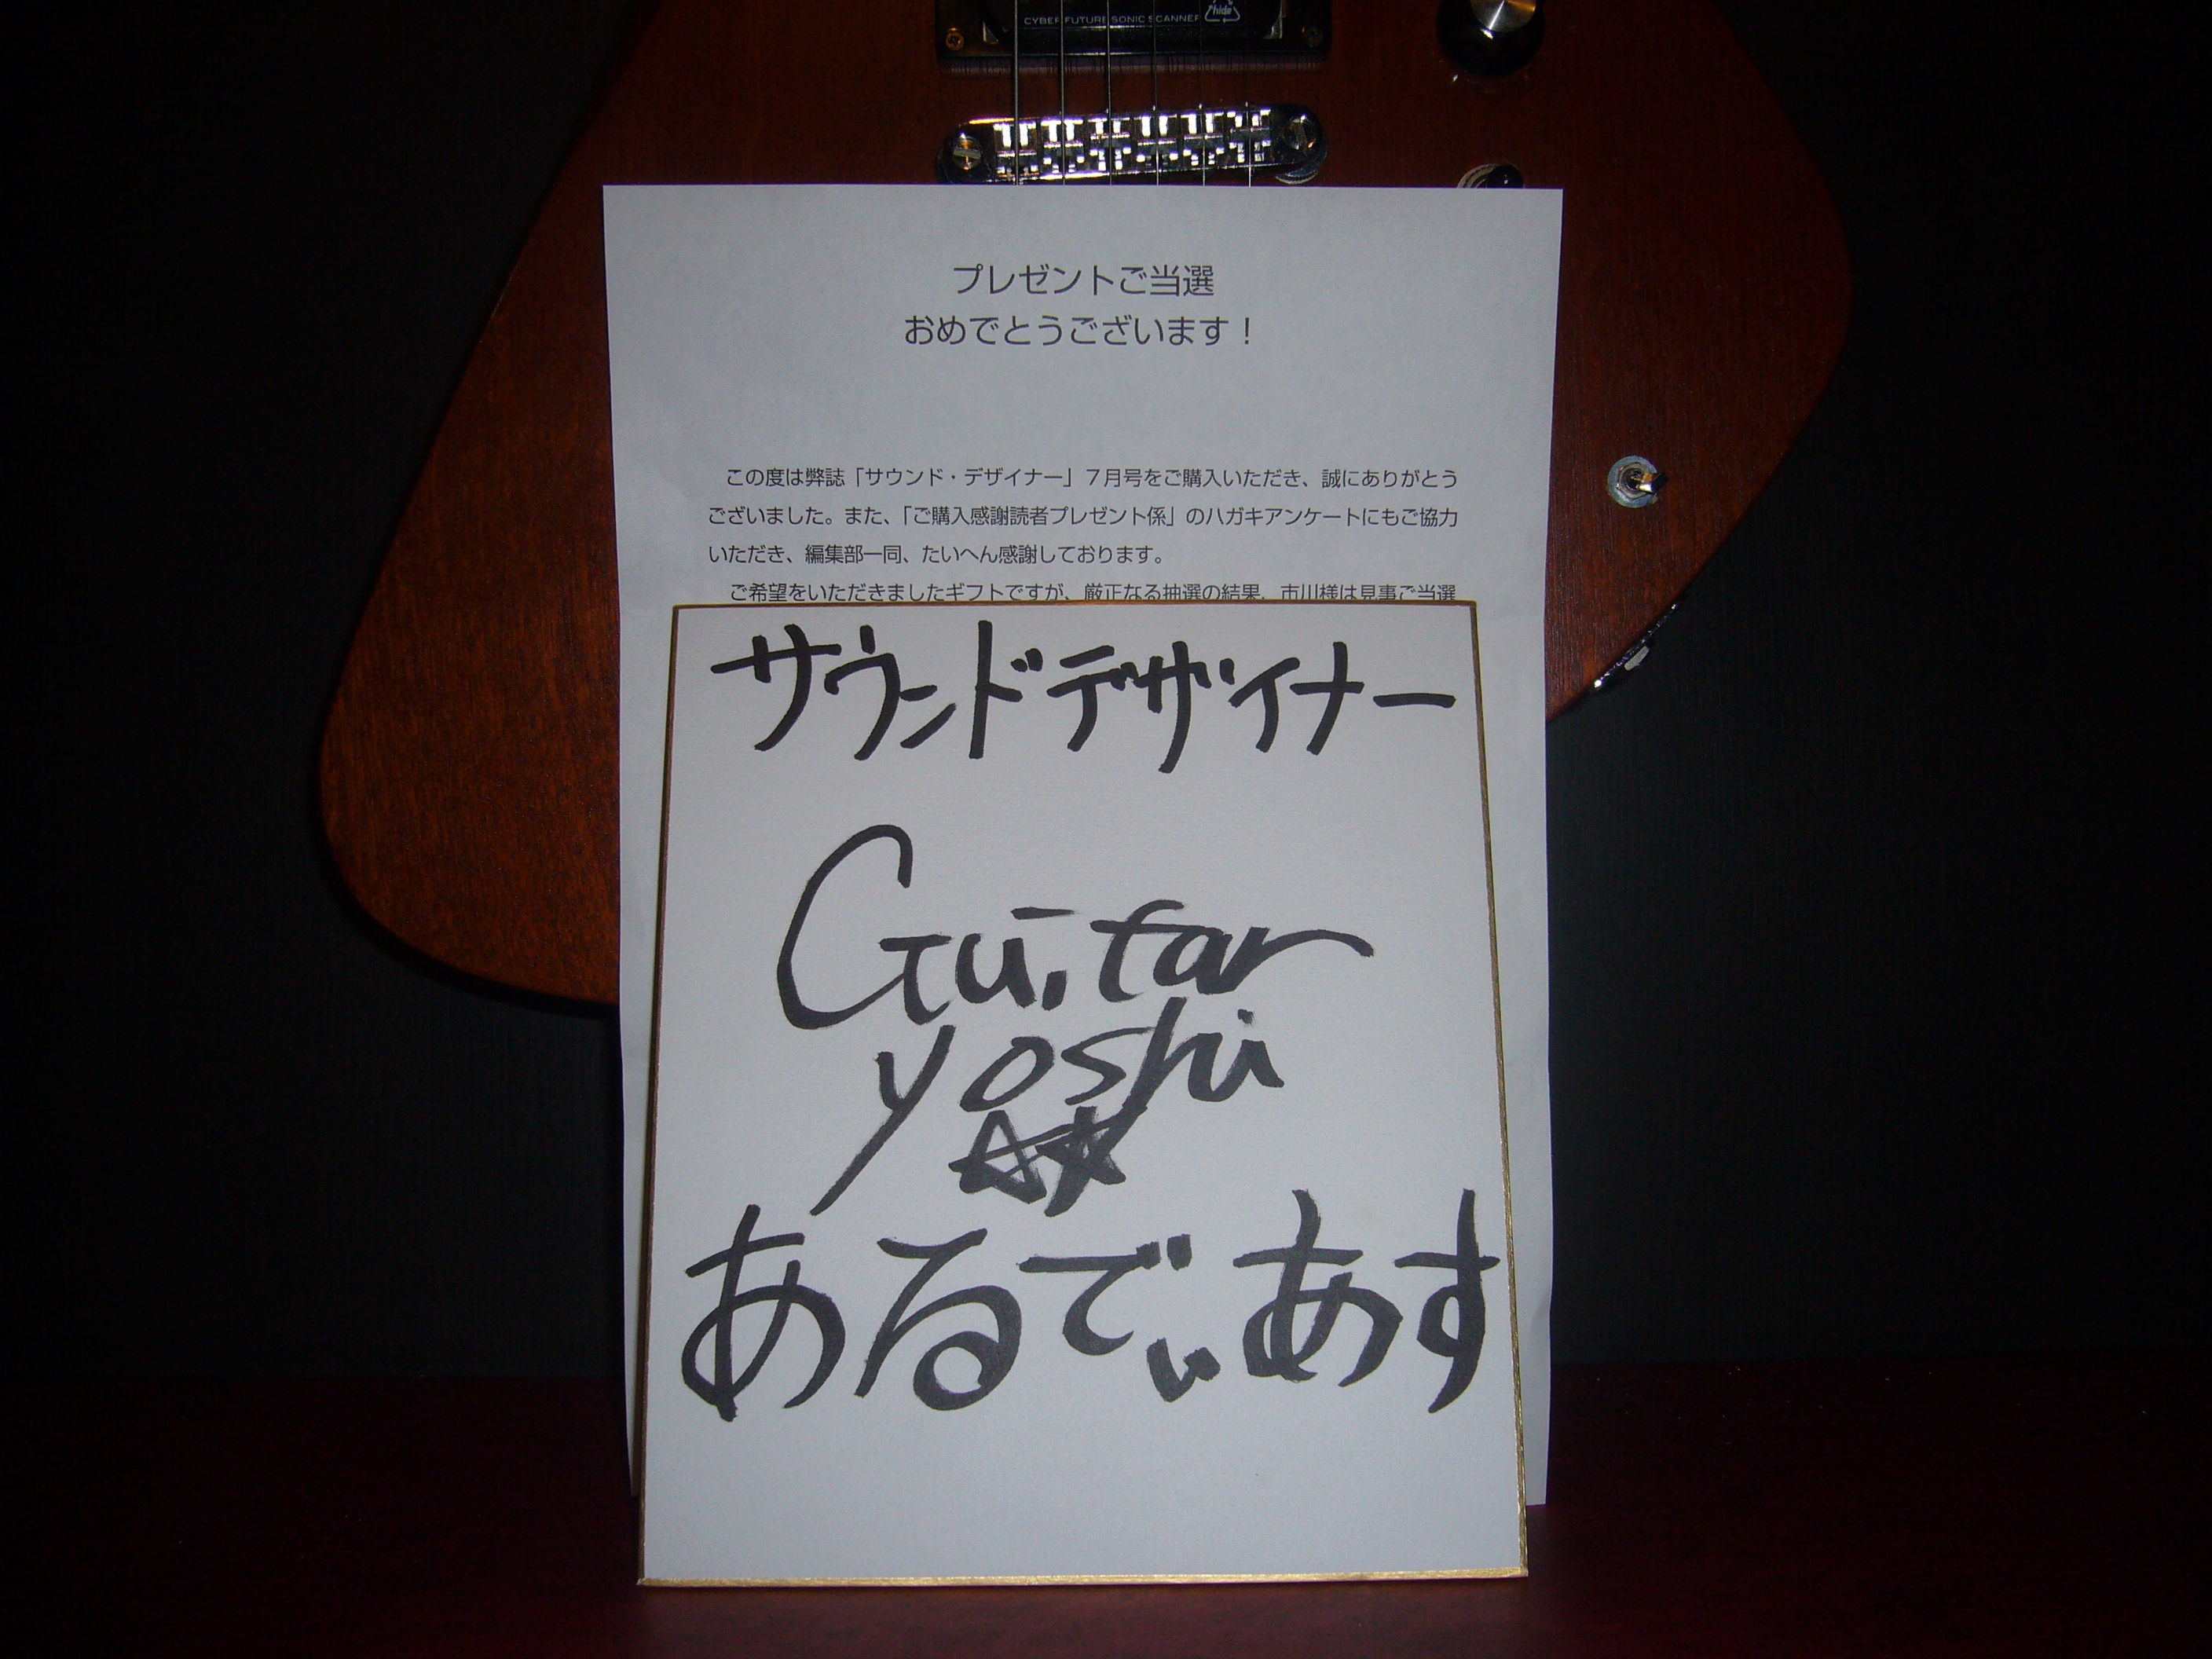 CYBER FUTURE SONIC SCANNER
hide
プレゼントご当選
おめでとうございます！
この度は弊誌「サウンド・デザイナー」７月号をご購入いただき、誠にありがとう
ございました。また、「ご購入感謝読者プレゼント係」のハガキアンケートにもご協力
いただき、編集部一同、たいへん感謝しております。
ご希望をいただきましたギフトですが、厳正なる抽選の結果、市川様は見事ご当選
サウンドデザイナー
Guitar
yoshi
あるでぃあす